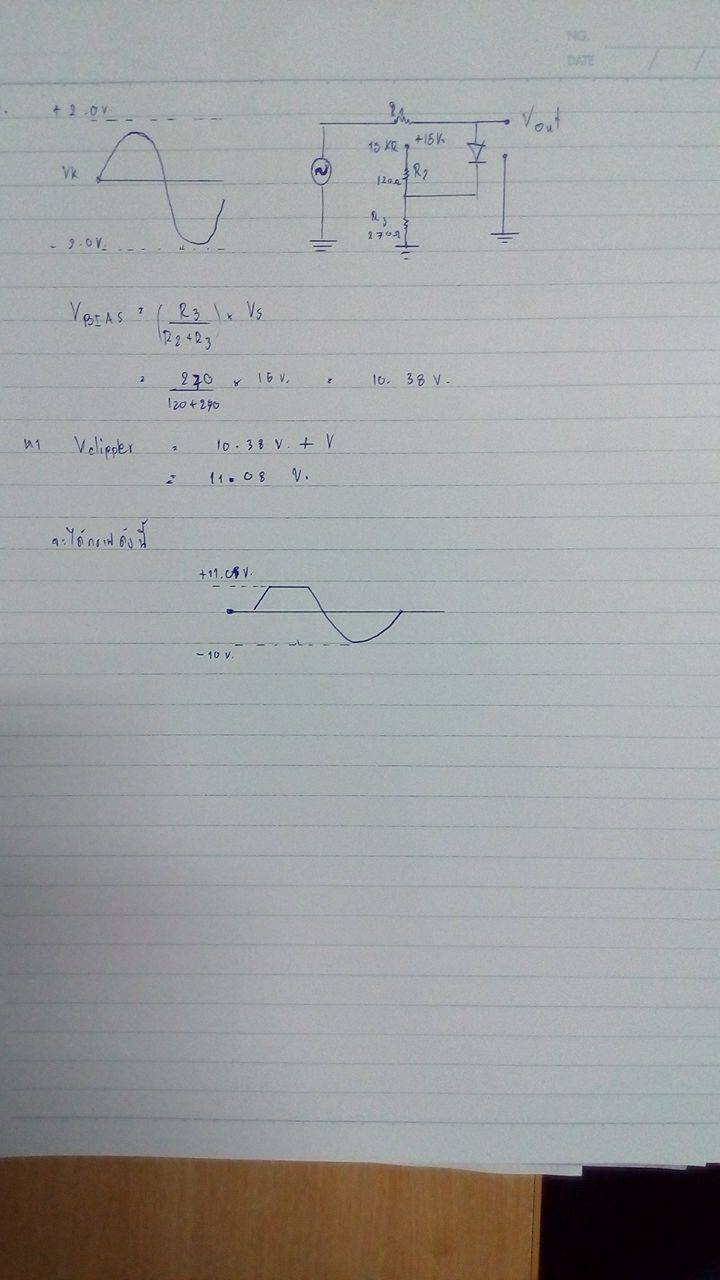 NO.
DATE / /
+ 2.0v
R1
Vout
15 KΩ +15V.
VR
120Ω R2
R3
270Ω
- 2.0V.
VBIAS = (R3 / R2+R3) × VS
= 270 / 120+270 × 15 V. = 10.38 V.
หา Vclipper = 10.38 V. + V
= 11.08 V.
จะได้กราฟดังนี้
+11.08V.
-10 V.